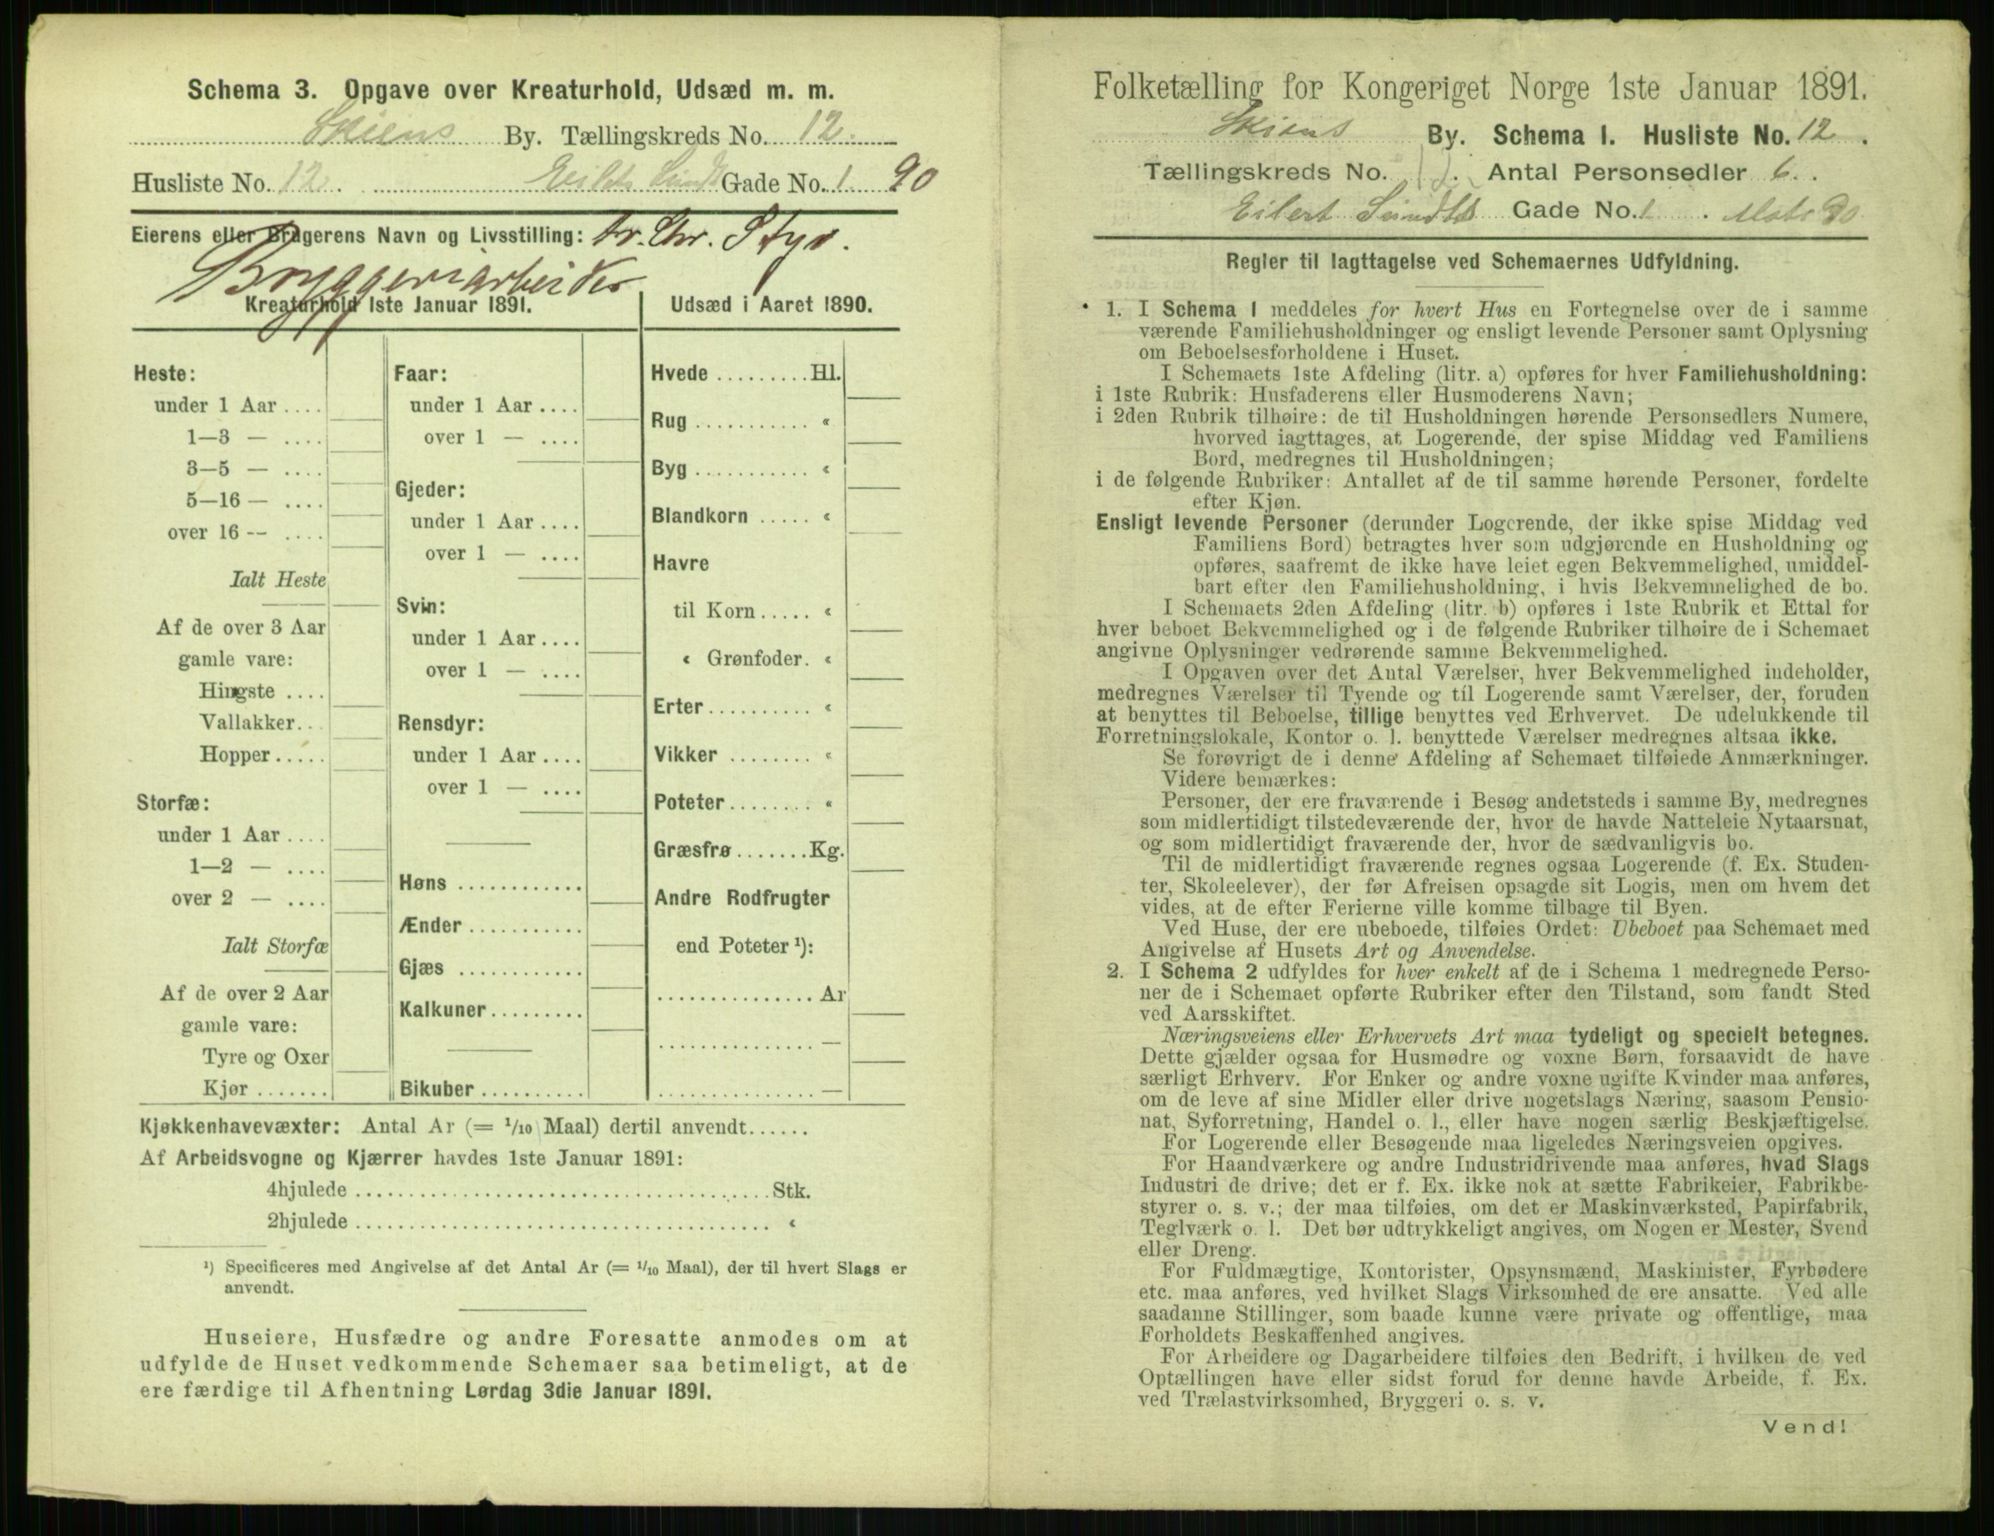 Schema 3. Opgave over Kreaturhold, Udsæd m. m.
Skiens By. Tællingskreds No. 12.
Husliste No. 12. Eilerts Sundts Gade No. 1 90
Eierens eller Brugerens Navn og Livsstilling: Chr. Styr.
Bryggeriarbeider
Kreaturhold 1ste Januar 1891.
Heste:
under 1 Aar ....
1—3 — ....
3—5 — ....
5—16 — ....
over 16 -- ....
Ialt Heste
Af de over 3 Aar
gamle vare:
Hingste ....
Vallakker...
Hopper.....
Storfæ:
under 1 Aar ....
1—2 — ....
over 2 — ....
Ialt Storfæ
Af de over 2 Aar
gamle vare:
Tyre og Oxer
Kjør .......
Faar:
under 1 Aar ....
over 1 — ....
Gjeder:
under 1 Aar ....
over 1 — ....
Svin:
under 1 Aar ....
over 1 — ....
Rensdyr:
under 1 Aar ....
over 1 — ....
Høns ............
Ænder ...........
Gjæs ............
Kalkuner.........
Bikuber ..........
Udsæd i Aaret 1890.
Hvede .........Hl.
Rug ........... «
Byg ........... «
Blandkorn ..... «
Havre
til Korn..... «
« Grønfoder. «
Erter.......... «
Vikker ........ «
Poteter........ «
Græsfrø.......Kg.
Andre Rodfrugter
end Poteter ¹):
............... Ar
............... —
............... —
Kjøkkenhavevæxter: Antal Ar (= 1/10 Maal) dertil anvendt......
Af Arbeidsvogne og Kjærrer havdes 1ste Januar 1891:
4hjulede ........................................Stk.
2hjulede ........................................ «
¹) Specificeres med Angivelse af det Antal Ar (= 1/10 Maal), der til hvert Slags er
anvendt.
Huseiere, Husfædre og andre Foresatte anmodes om at
udfylde de Huset vedkommende Schemaer saa betimeligt, at de
ere færdige til Afhentning Lørdag 3die Januar 1891.
Folketælling for Kongeriget Norge 1ste Januar 1891.
Skiens By. Schema I. Husliste No. 12.
Tællingskreds No. 12. Antal Personsedler 6.
Eilert Sundts Gade No. 1. Mats 90
Regler til Iagttagelse ved Schemaernes Udfyldning.
1. I Schema I meddeles for hvert Hus en Fortegnelse over de i samme
værende Familiehusholdninger og ensligt levende Personer samt Oplysning
om Beboelsesforholdene i Huset.
I Schemaets 1ste Afdeling (litr. a) opføres for hver Familiehusholdning:
i 1ste Rubrik: Husfaderens eller Husmoderens Navn;
i 2den Rubrik tilhøire: de til Husholdningen hørende Personsedlers Numere,
hvorved iagttages, at Logerende, der spise Middag ved Familiens
Bord, medregnes til Husholdningen;
i de følgende Rubriker: Antallet af de til samme hørende Personer, fordelte
efter Kjøn.
Ensligt levende Personer (derunder Logerende, der ikke spise Middag ved
Familiens Bord) betragtes hver som udgjørende en Husholdning og
opføres, saafremt de ikke have leiet egen Bekvemmelighed, umiddel-
bart efter den Familiehusholdning, i hvis Bekvemmelighed de bo.
I Schemaets 2den Afdeling (litr. b) opføres i 1ste Rubrik et Ettal for
hver beboet Bekvemmelighed og i de følgende Rubriker tilhøire de i Schemaet
angivne Oplysninger vedrørende samme Bekvemmelighed.
I Opgaven over det Antal Værelser, hver Bekvemmelighed indeholder,
medregnes Værelser til Tyende og til Logerende samt Værelser, der, foruden
at benyttes til Beboelse, tillige benyttes ved Erhvervet. De udelukkende til
Forretningslokale, Kontor o. l. benyttede Værelser medregnes altsaa ikke.
Se forøvrigt de i denne Afdeling af Schemaet tilføiede Anmærkninger.
Videre bemærkes:
Personer, der ere fraværende i Besøg andetsteds i samme By, medregnes
som midlertidigt tilstedeværende der, hvor de havde Natteleie Nytaarsnat,
og som midlertidigt fraværende der, hvor de sædvanligvis bo.
Til de midlertidigt fraværende regnes ogsaa Logerende (f. Ex. Studen-
ter, Skoleelever), der før Afreisen opsagde sit Logis, men om hvem det
vides, at de efter Ferierne ville komme tilbage til Byen.
Ved Huse, der ere ubeboede, tilføies Ordet: Ubeboet paa Schemaet med
Angivelse af Husets Art og Anvendelse.
2. I Schema 2 udfyldes for hver enkelt af de i Schema 1 medregnede Perso-
ner de i Schemaet opførte Rubriker efter den Tilstand, som fandt Sted
ved Aarsskiftet.
Næringsveiens eller Erhvervets Art maa tydeligt og specielt betegnes.
Dette gjælder ogsaa for Husmødre og voxne Børn, forsaavidt de have
særligt Erhverv. For Enker og andre voxne ugifte Kvinder maa anføres,
om de leve af sine Midler eller drive nogetslags Næring, saasom Pensio-
nat, Syforretning, Handel o. l., eller have nogen særlig Beskjæftigelse.
For Logerende eller Besøgende maa ligeledes Næringsveien opgives.
For Haandværkere og andre Industridrivende maa anføres, hvad Slags
Industri de drive; det er f. Ex. ikke nok at sætte Fabrikeier, Fabrikbe-
styrer o. s. v.; der maa tilføies, om det er Maskinværksted, Papirfabrik,
Teglværk o. l. Det bør udtrykkeligt angives, om Nogen er Mester, Svend
eller Dreng.
For Fuldmægtige, Kontorister, Opsynsmænd, Maskinister, Fyrbødere
etc. maa anføres, ved hvilket Slags Virksomhed de ere ansatte. Ved alle
saadanne Stillinger, som baade kunne være private og offentlige, maa
Forholdets Beskaffenhed angives.
For Arbeidere og Dagarbeidere tilføies den Bedrift, i hvilken de ved
Optællingen have eller sidst forud for denne havde Arbeide, f. Ex.
ved Trælastvirksomhed, Bryggeri o. s. v.
Vend!